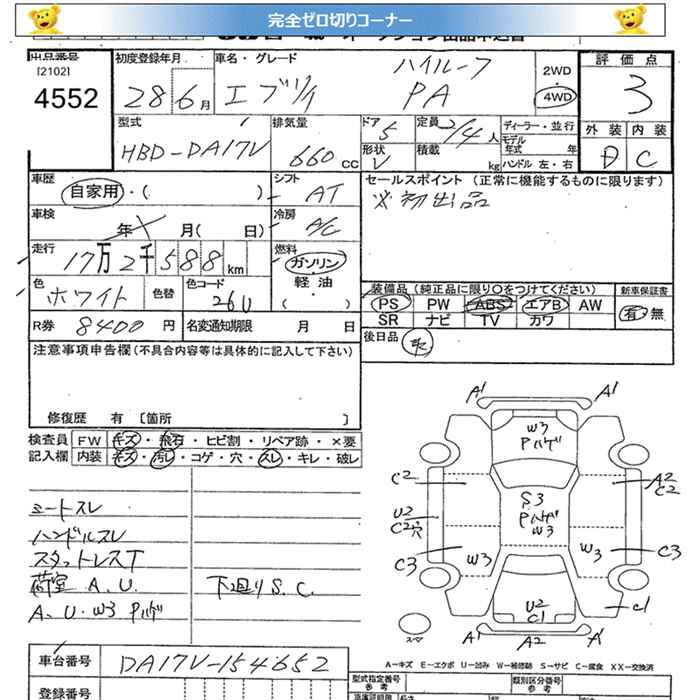 完全ゼロ切りコーナー
出品番号
[2102]
4552
初度登録年月
28年6月
車名・グレード
エブリイ
ハイルーフ
PA
2WD
4WD
評価点
3
外装 内装
D C
型式
HBD-DA17V
排気量
660 cc
ドア
5
形状
V
定員
2/4人
積載
kg
ディーラー・並行
モデル年式 年
ハンドル 左・右
車歴
自家用・( )
シフト
AT
車検
年 月( 日)
冷房
A/C
走行
17万2千588km
燃料
ガソリン
軽油
( )
色
ホワイト
色替
色コード
26U
R券 8400円
名変通知期限 月 日
セールスポイント (正常に機能するものに限ります)
※初出品
装備品(純正品に限り○をつけてください)
PS PW ABS エアB AW
SR ナビ TV カワ
新車保証書
有・無
後日品
注意事項申告欄(不具合内容等は具体的に記入して下さい)
修復歴 有 〔箇所 〕
検査員記入欄
FW キズ・飛石・ヒビ割・リペア跡・×要
内装 キズ・汚レ・コゲ・穴・スレ・キレ・破レ
シートスレ
ハンドルスレ
スタットレスT
荷室 A.U.
下廻りS.C.
A.U.W3 Pハゲ
A1 A1
W3
Pハゲ
C2
A2
C2
S3
Pハゲ
W3
U2
C2穴
C3
W3
W3
C3
U2
C1
C1
スマ
A1 A2 A1
A-キズ E-エクボ U-凹み W-補修跡 S-サビ C-腐食 XX-交換済
車台番号 DA17V-154652
登録番号
型式指定番号
参考
類別区分番号
参考